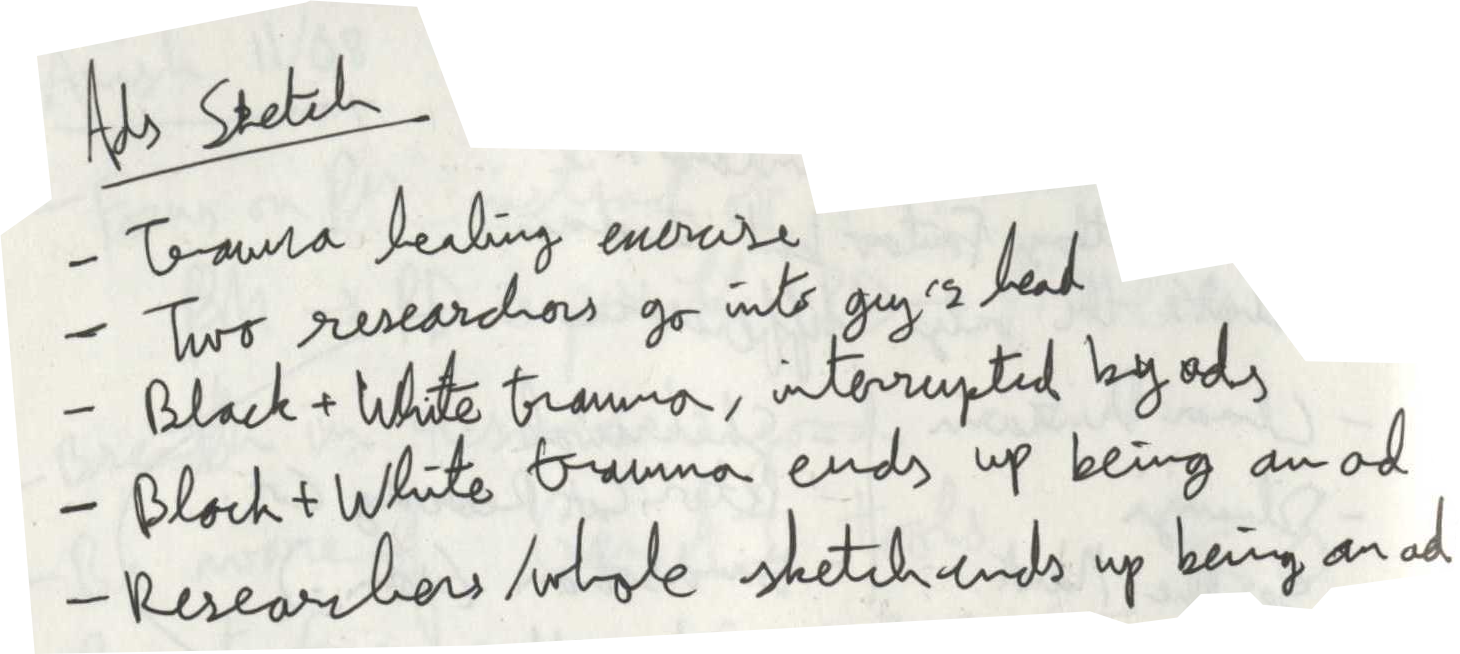 Ads Sketch
- Trauma healing exercise
- Two researchers go into guy's head
- Black + White trauma, interrupted by ads
- Black + White trauma ends up being an ad
- Researchers / whole sketch ends up being an ad